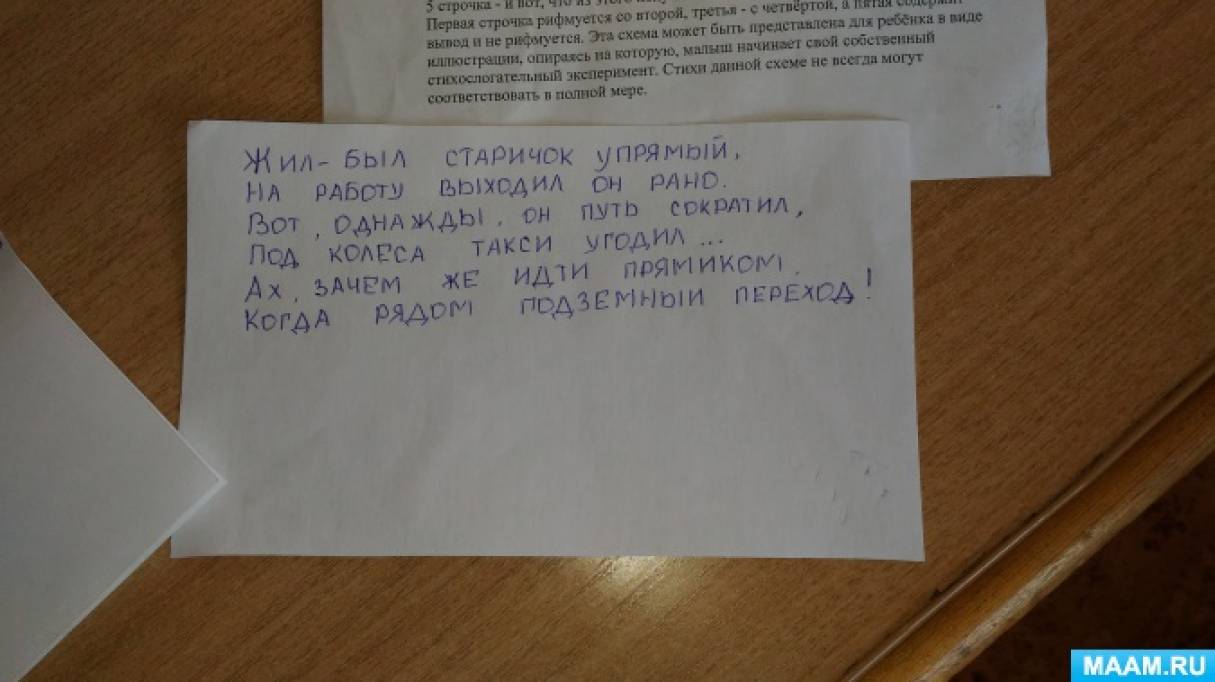 5 строчка - и вот, что из этого
Первая строчка рифмуется со второй, третья - с четвёртой, а пятая содержит
вывод и не рифмуется. Эта схема может быть представлена для ребёнка в виде
иллюстрации, опираясь на которую, малыш начинает свой собственный
стихослогательный эксперимент. Стихи данной схеме не всегда могут
соответствовать в полной мере.
ЖИЛ-БЫЛ СТАРИЧОК УПРЯМЫЙ,
НА РАБОТУ ВЫХОДИЛ ОН РАНО.
ВОТ, ОДНАЖДЫ, ОН ПУТЬ СОКРАТИЛ,
ПОД КОЛЕСА ТАКСИ УГОДИЛ...
АХ, ЗАЧЕМ ЖЕ ИДТИ ПРЯМИКОМ,
КОГДА РЯДОМ ПОДЗЕМНЫЙ ПЕРЕХОД!
MAAM.RU